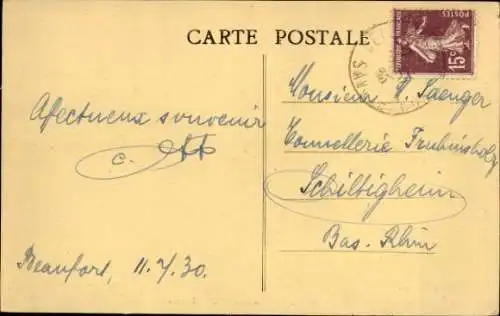 CARTE POSTALE
POSTES
15c
Afectueux souvenir
Beaufort, 11.7.30.
Monsieur Saenger
Tonnellerie Fruhinsholz
Schiltigheim
Bas. Rhin